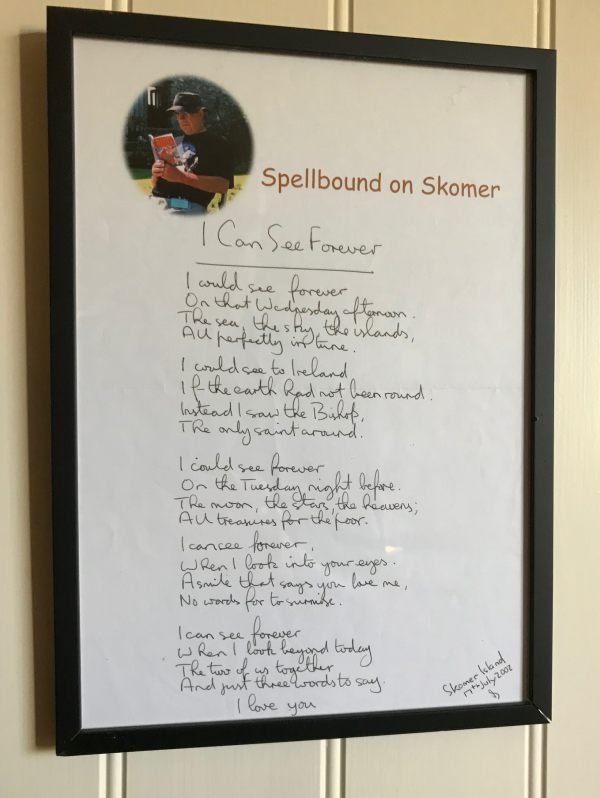 Spellbound on Skomer
I Can See Forever
I could see forever
On that Wednesday afternoon.
The sea, the sky, the islands,
All perfectly in tune.
I could see to Ireland
If the earth had not been round.
Instead I saw the Bishop,
The only saint around.
I could see forever
On the Tuesday night before.
The moon, the stars, the heavens;
All treasures for the poor.
I can see forever,
When I look into your eyes.
A smile that says you love me,
No words for to surmise.
I can see forever
When I look beyond today
The two of us together
And just three words to say.
I love you
Skomer Island
17th July 2002